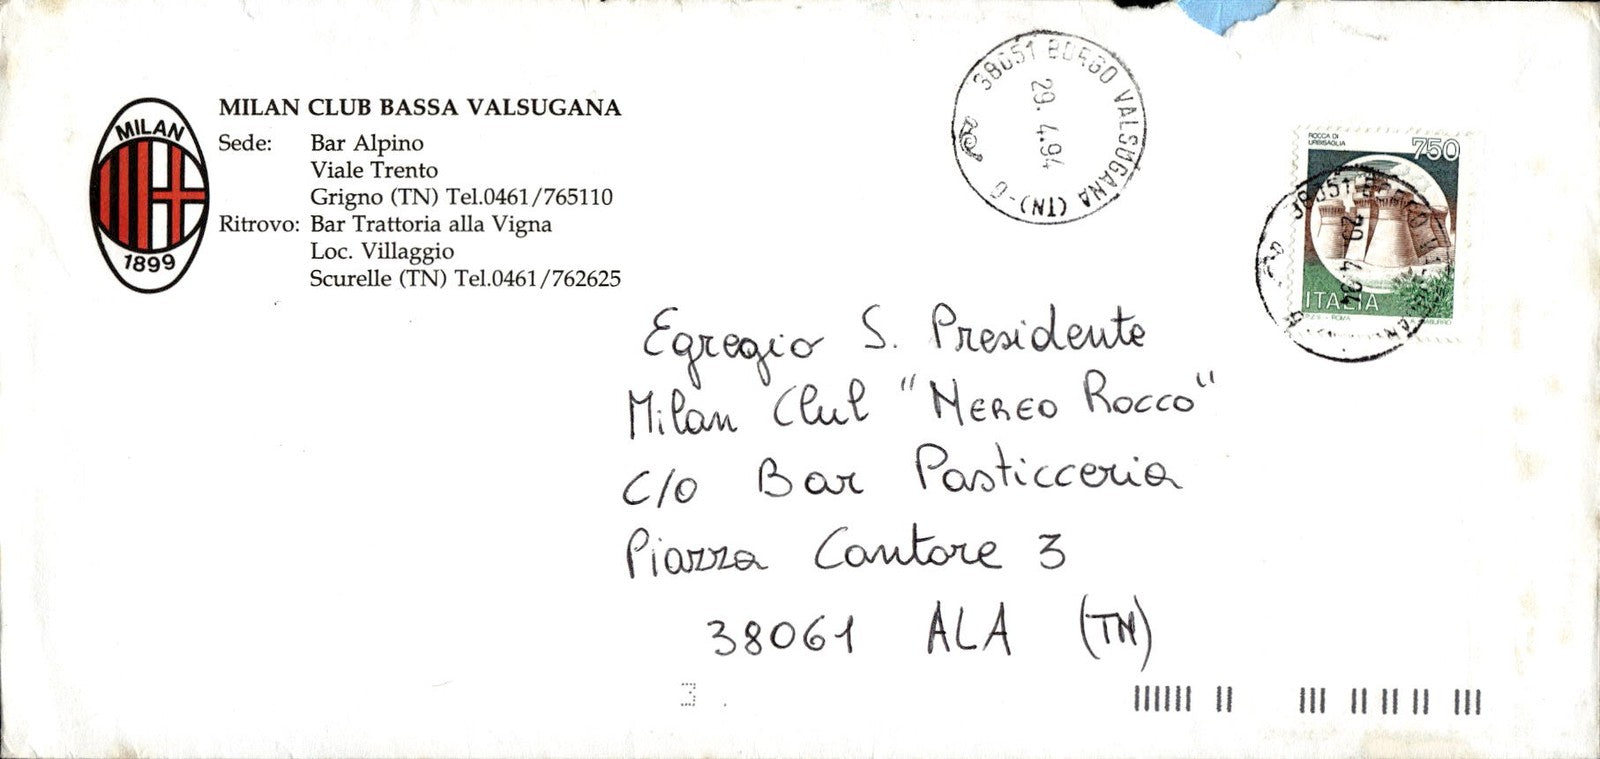 MILAN
1899
MILAN CLUB BASSA VALSUGANA
Sede: Bar Alpino
Viale Trento
Grigno (TN) Tel.0461/765110
Ritrovo: Bar Trattoria alla Vigna
Loc. Villaggio
Scurelle (TN) Tel.0461/762625
38051 BORGO VALSUGANA (TN)
29. 4.94
ROCCA DI
URBISAGLIA
750
ITALIA
ROMA
38051 BORGO
29 4.94
Egregio S. Presidente
Milan Club "NEREO ROCCO"
C/O Bar Pasticceria
Piazza Cantore 3
38061 ALA (TN)
3